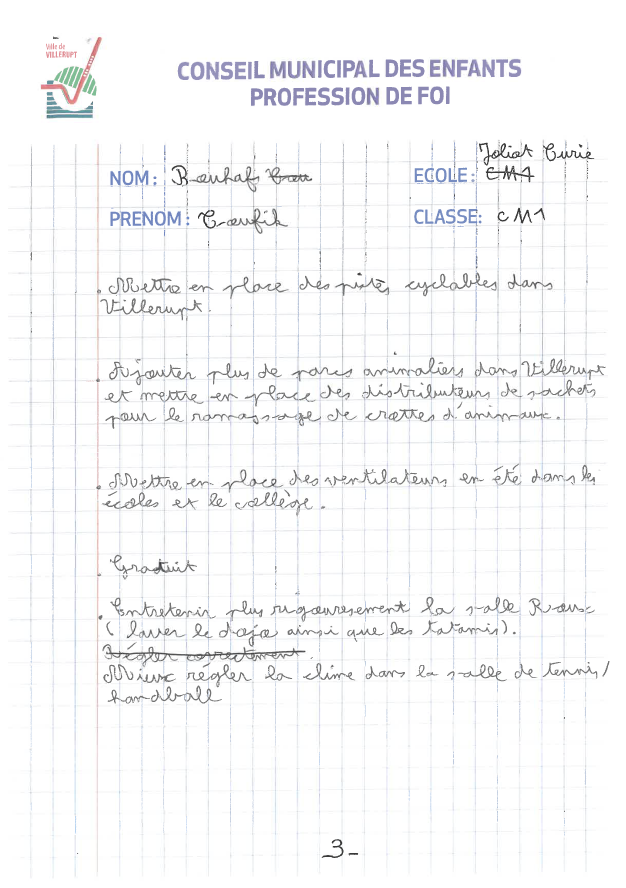 Ville de
VILLERUPT
CONSEIL MUNICIPAL DES ENFANTS
PROFESSION DE FOI
Joliot Curie
NOM: Bouhafs ECOLE: CM1
PRENOM: Toufik CLASSE: CM1
. Mettre en place des pistes cyclables dans
Villerupt.
. Ajouter plus de parcs animaliers dans Villerupt
et mettre en place des distributeurs de sachets
pour le ramassage de crottes d'animaux.
. Mettre en place des ventilateurs en été dans les
écoles et le collège.
. Gratuit
. Entretenir plus rigouresement la salle Roux
( laver le dojo ainsi que les tatamis).
Régler correctement.
Mieux régler la clime dans la salle de tennis/
handball
3-